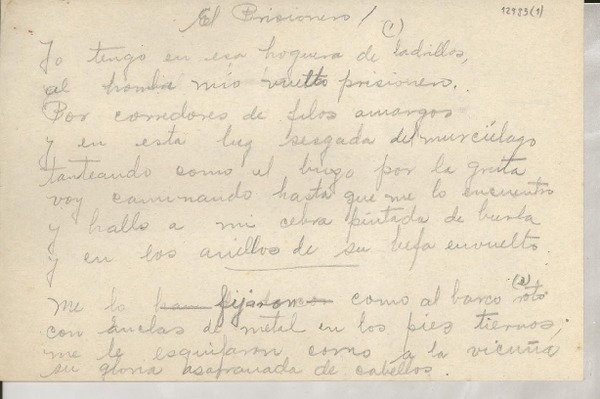 El Prisionero /
12983(1)
(1)
Yo tengo en esa hoguera de ladrillos,
al hombre mío vuelto prisionero.
Por corredores de filos amargos
y en esta luz sesgada del murciélago
tanteando como el buzo por la gruta
voy caminando hasta que me lo encuentro
y hallo a mi cebra pintada de burla
y en los anillos de su befa envuelto.
(2)
Me lo han fijaron como al barco roto
con anclas de metal en los pies tiernos;
me le esquilaron como a la vicuña
su gloria asafranada de cabellos.